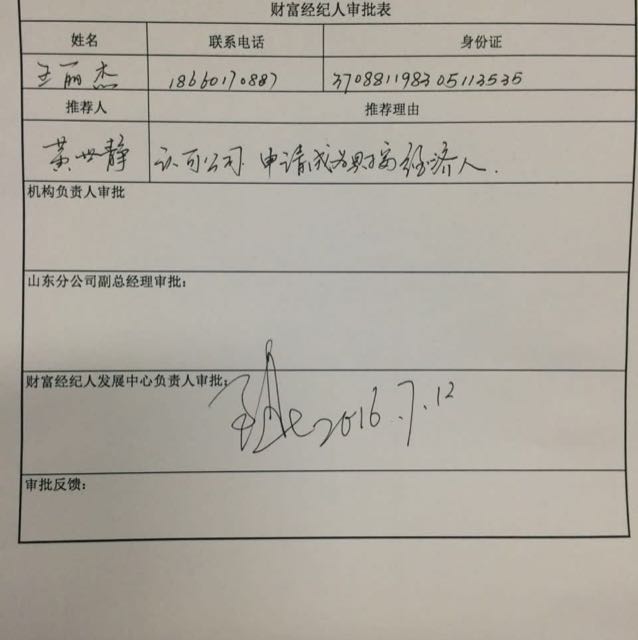 财富经纪人审批表
姓名 联系电话 身份证
王丽杰 18660170887 370881198305113535
推荐人 推荐理由
黄世静 认可公司.申请成为财富经济人.
机构负责人审批
山东分公司副总经理审批：
财富经纪人发展中心负责人审批：
2016.7.12
审批反馈：